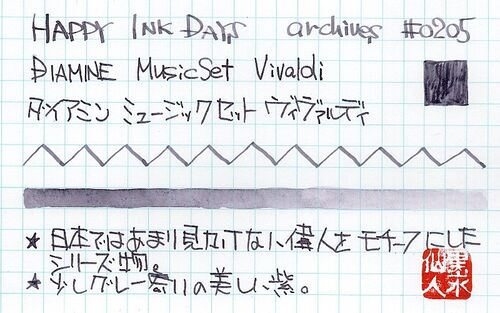 HAPPY INK DAYS archives #0205
DIAMINE MusicSet Vivaldi
ダイアミン ミュージックセット ヴィヴァルディ
★ 日本ではあまり見かけない、偉人をモチーフにした
シリーズ物。
★ 少しグレー寄りの美しい紫。